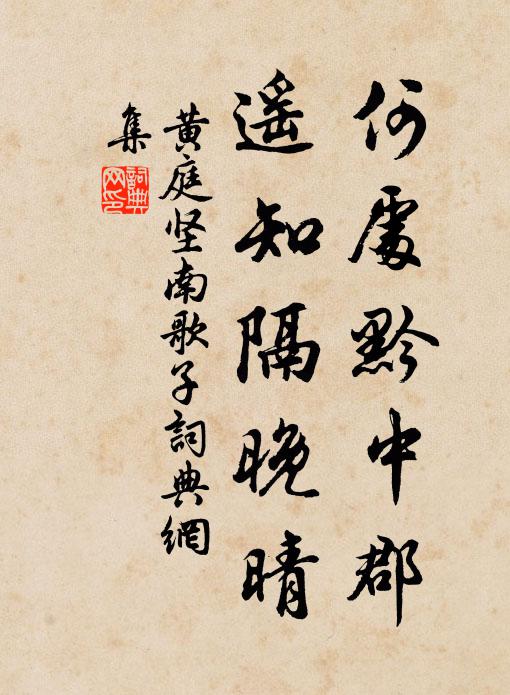 何處黔中郡
遥知隔晚晴
黄庭坚南歌子詞典網
集
詞典网印